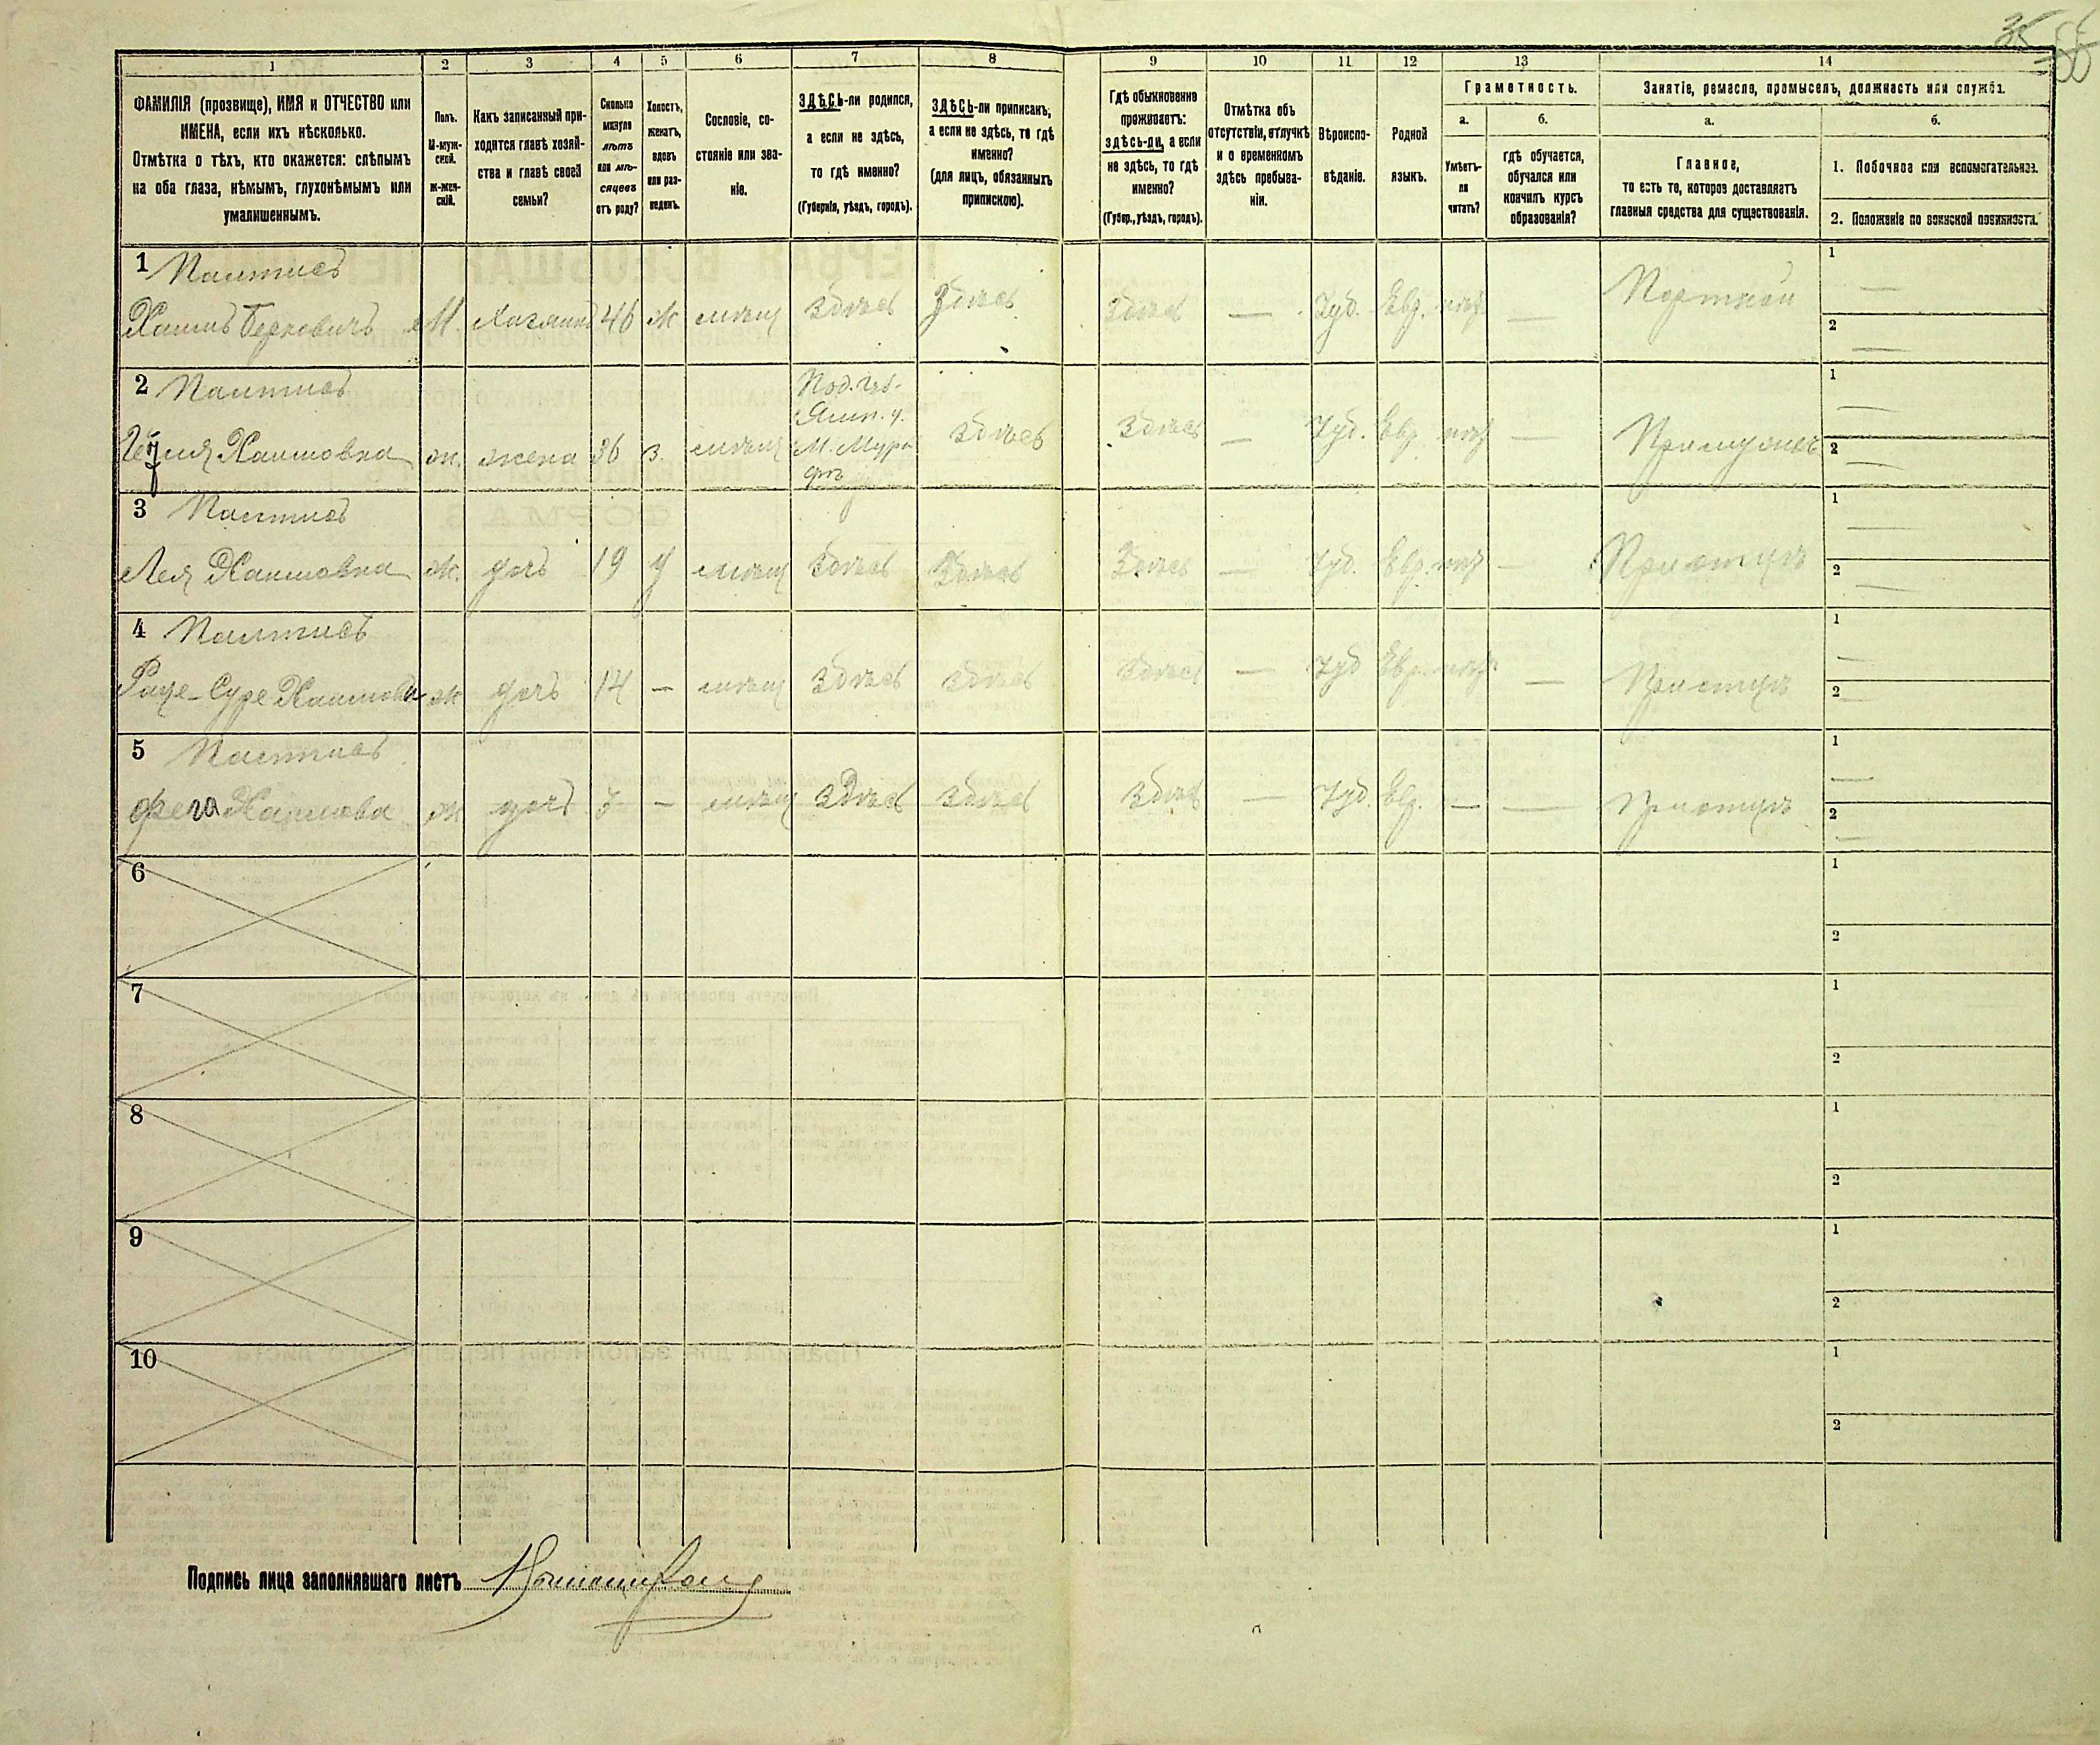 35
1 2 3 4 5 6 7 8 9 10 11 12 13 14
ФАМИЛІЯ (прозвище), ИМЯ и ОТЧЕСТВО или
ИМЕНА, если ихъ нѣсколько.
Отмѣтка о тѣхъ, кто окажется: слѣпымъ
на оба глаза, нѣмымъ, глухонѣмымъ или
умалишеннымъ.
Полъ.
М-муж-
ской.
Ж-жен-
скій.
Какъ записанный при-
ходится главѣ хозяй-
ства и главѣ своей
семьи?
Сколько
минуло
лѣтъ
или мѣ-
сяцевъ
отъ роду?
Холостъ,
женатъ,
вдовъ
или раз-
веденъ.
Сословіе, со-
стояніе или зва-
ніе.
ЗДѢСЬ-ли родился,
а если не здѣсь,
то гдѣ именно?
(Губернія, уѣздъ, городъ).
ЗДѢСЬ-ли приписанъ,
а если не здѣсь, то гдѣ
именно?
(для лицъ, обязанныхъ
припискою).
Гдѣ обыкновенно
проживаетъ:
здѣсь-ли, а если
не здѣсь, то гдѣ
именно?
(Губер., уѣздъ, городъ).
Отмѣтка объ
отсутствіи, отлучкѣ
и о временномъ
здѣсь пребыва-
ніи.
Вѣроиспо-
вѣданіе.
Родной
языкъ.
Грамотность.
а.
Умѣетъ-
ли
читать?
б.
гдѣ обучается,
обучался или
кончилъ курсъ
образованія?
Занятіе, ремесло, промыселъ, должность или служба.
а.
Главное,
то есть то, которое доставляетъ
главныя средства для существованія.
б.
1. Побочное или вспомогательное.
2. Положеніе по воинской повинности.
1
Хаимъ Берковичъ М. Хозяинъ 46 ж мѣщ Здѣсь Здѣсь Здѣсь — Іуд. Евр. — Портной 1 — 2 —
2 Под. Губ.
Ямп. у.
Хаимовна ж. жена 36 з. мѣщ М. Мура Здѣсь Здѣсь — Іуд. Евр. — При мужѣ 1 — 2 —
фъ
3
Лея Хаимовна ж. дочь 19 мѣщ Здѣсь Здѣсь Здѣсь — Іуд. Евр. — При отцѣ 1 — 2 —
4
Суре ж дочь 14 — мѣщ Здѣсь Здѣсь Здѣсь — Іуд Евр. — При отцѣ 1 — 2 —
5
Фега Хаимова ж дочь — мѣщ Здѣсь Здѣсь Здѣсь — Іуд. Евр. — — При отцѣ 1 — 2 —
6 1 2
7 1 2
8 1 2
9 1 2
10 1 2
Подпись лица заполнявшаго листъ